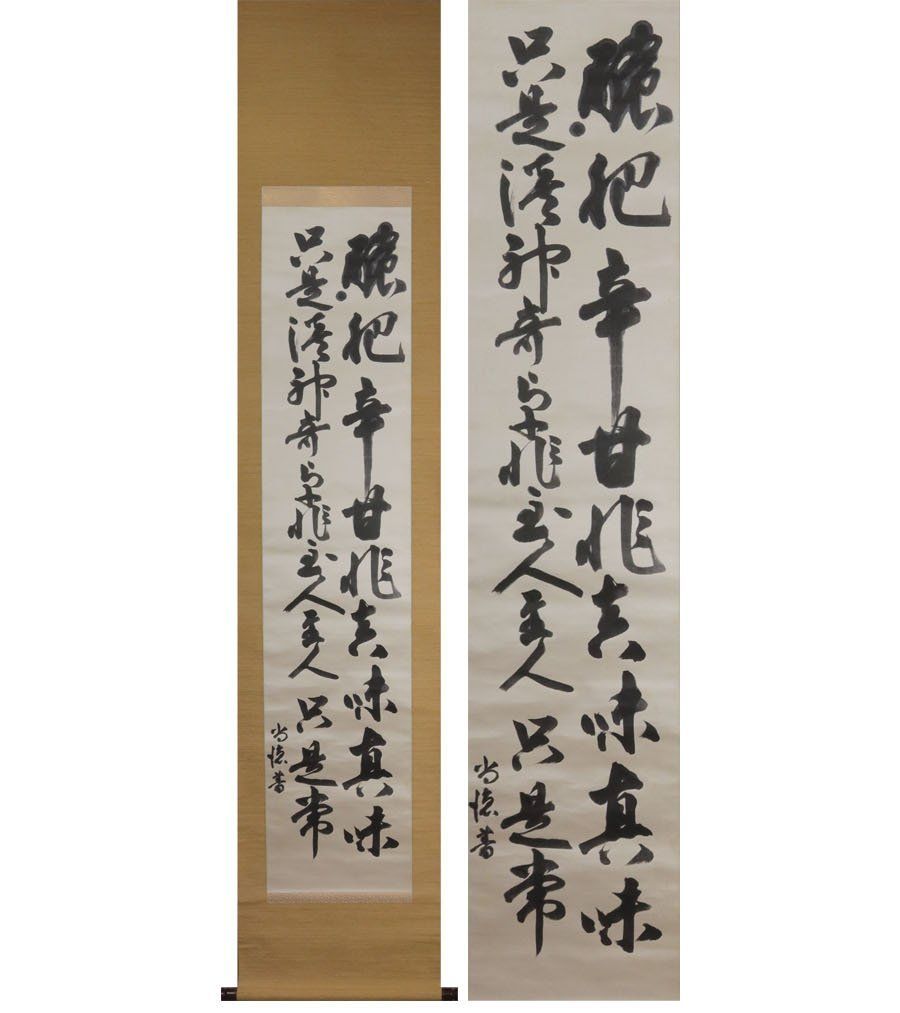 醲肥辛甘非真味真味
只是淡神奇卓異非至人至人只是常
尚憶書
醲肥辛甘非真味真味
只是淡神奇卓異非至人至人只是常
尚憶書